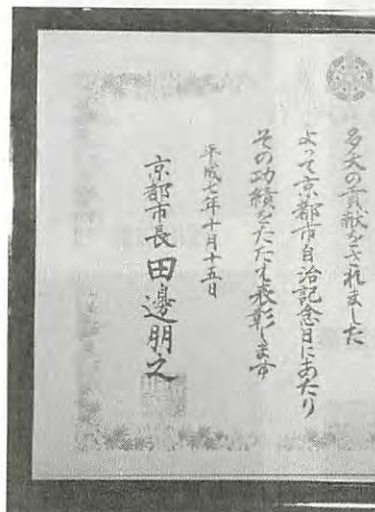 多大の貢献をされました
よって京都市自治記念日にあたり
その功績をたたえ表彰します
平成七年十月十五日
京都市長 田邊朋之